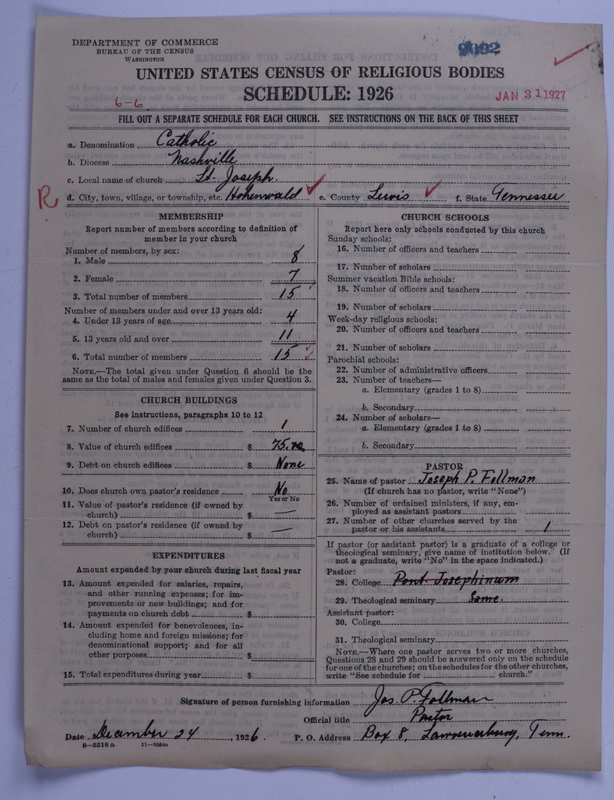 DEPARTMENT OF COMMERCE
BUREAU OF THE CENSUS
WASHINGTON
UNITED STATES CENSUS OF RELIGIOUS BODIES
SCHEDULE: 1926
6-6
JAN 31 1927
FILL OUT A SEPARATE SCHEDULE FOR EACH CHURCH. SEE INSTRUCTIONS ON THE BACK OF THIS SHEET
a. Denomination Catholic
b. Diocese Nashville
c. Local name of church St. Joseph.
R d. City, town, village, or township, etc. Hohenwald e. County Lewis f. State Tennessee
MEMBERSHIP
Report number of members according to definition of
member in your church
Number of members, by sex:
1. Male 8
2. Female 7
3. Total number of members 15
Number of members under and over 13 years old:
4. Under 13 years of age 4
5. 13 years old and over 11
6. Total number of members 15
NOTE.—The total given under Question 6 should be the
same as the total of males and females given under Question 3.
CHURCH BUILDINGS
See instructions, paragraphs 10 to 12
7. Number of church edifices 1
8. Value of church edifices $ 75.
9. Debt on church edifices $ None
10. Does church own pastor's residence No
Yes or No
11. Value of pastor's residence (if owned by
church) $ —
12. Debt on pastor's residence (if owned by
church) $ —
EXPENDITURES
Amount expended by your church during last fiscal year
13. Amount expended for salaries, repairs,
and other running expenses; for im-
provements or new buildings; and for
payments on church debt $
14. Amount expended for benevolences, in-
cluding home and foreign missions; for
denominational support; and for all
other purposes $
15. Total expenditures during year $
CHURCH SCHOOLS
Report here only schools conducted by this church
Sunday schools:
16. Number of officers and teachers
17. Number of scholars
Summer vacation Bible schools:
18. Number of officers and teachers
19. Number of scholars
Week-day religious schools:
20. Number of officers and teachers
21. Number of scholars
Parochial schools:
22. Number of administrative officers
23. Number of teachers—
a. Elementary (grades 1 to 8)
b. Secondary
24. Number of scholars—
a. Elementary (grades 1 to 8)
b. Secondary
PASTOR
25. Name of pastor Joseph P. Follman
(If church has no pastor, write "None")
26. Number of ordained ministers, if any, em-
ployed as assistant pastors
27. Number of other churches served by the
pastor or his assistants 1
If pastor (or assistant pastor) is a graduate of a college or
theological seminary, give name of institution below. (If
not a graduate, write "No" in the space indicated.)
Pastor:
28. College Pont. Josephinum
29. Theological seminary Same.
Assistant pastor:
30. College
31. Theological seminary
NOTE.—Where one pastor serves two or more churches,
Questions 28 and 29 should be answered only on the schedule
for one of the churches; on the schedules for the other churches,
write "See schedule for church."
Signature of person furnishing information Jos. P. Follman
Official title Pastor
Date December 24, 1926. P. O. Address Box 8, Lawrenceburg, Tenn.
8-5318a